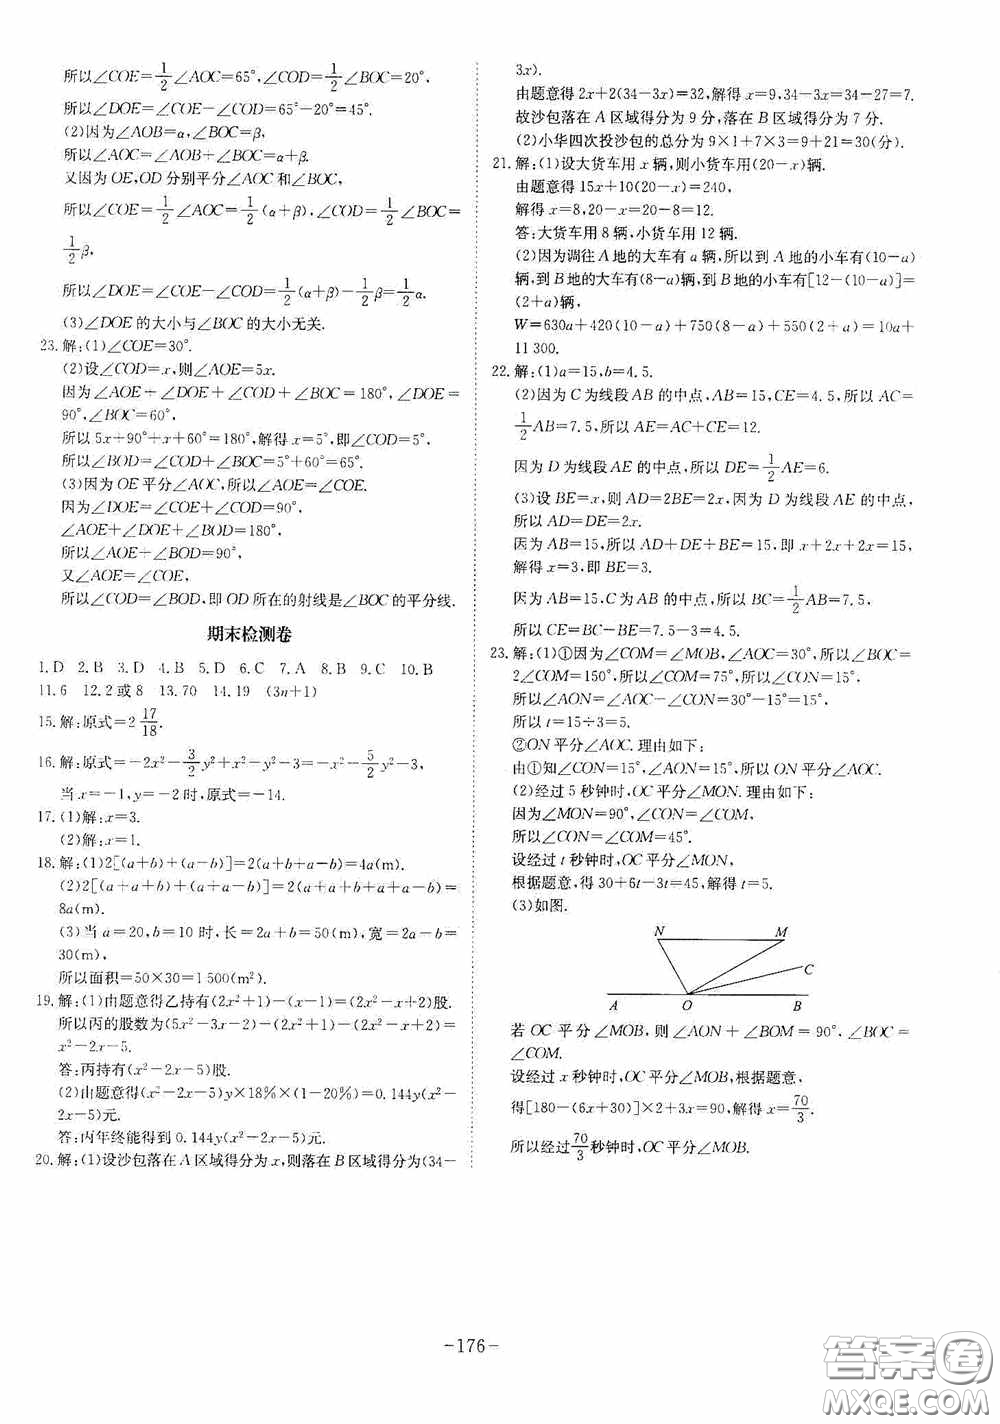 所以∠COE=1/2∠AOC=65°,∠COD=1/2∠BOC=20°.
所以∠DOE=∠COE-∠COD=65°-20°=45°.
(2)因为∠AOB=α,∠BOC=β,
所以∠AOC=∠AOB+∠BOC=α+β.
又因为OE,OD分别平分∠AOC和∠BOC,
所以∠COE=1/2∠AOC=1/2(α+β),∠COD=1/2∠BOC=
1/2β,
所以∠DOE=∠COE-∠COD=1/2(α+β)-1/2β=1/2α.
(3)∠DOE的大小与∠BOC的大小无关.
23.解:(1)∠COE=30°.
(2)设∠COD=x,则∠AOE=5x.
因为∠AOE+∠DOE+∠COD+∠BOC=180°,∠DOE=
90°,∠BOC=60°,
所以5x+90°+x+60°=180°,解得x=5°,即∠COD=5°.
所以∠BOD=∠COD+∠BOC=5°+60°=65°.
(3)因为OE平分∠AOC,所以∠AOE=∠COE.
因为∠DOE=∠COE+∠COD=90°,
∠AOE+∠DOE+∠BOD=180°,
所以∠AOE+∠BOD=90°.
又∠AOE=∠COE,
所以∠COD=∠BOD,即OD所在的射线是∠BOC的平分线.
期末检测卷
1.D 2.B 3.D 4.B 5.D 6.C 7.A 8.B 9.C 10.B
11.6 12.2或8 13.70 14.19 (3n+1)
15.解:原式=2 17/18.
16.解:原式=-2x²-3/2y²+x²-y²-3=-x²-5/2y²-3,
当x=-1,y=-2时,原式=-14.
17.(1)解:x=3.
(2)解:x=1.
18.解:(1)2[(a+b)+(a-b)]=2(a+b+a-b)=4a(m).
(2)2[(a+a+b)+(a+a-b)]=2(a+a+b+a+a-b)=
8a(m).
(3)当a=20,b=10时,长=2a+b=50(m),宽=2a-b=
30(m),
所以面积=50×30=1 500(m²).
19.解:(1)由题意得乙持有(2x²+1)-(x-1)=(2x²-x+2)股.
所以丙的股数为(5x²-3x-2)-(2x²+1)-(2x²-x+2)=
x²-2x-5.
答:丙持有(x²-2x-5)股.
(2)由题意得(x²-2x-5)y×18%×(1-20%)=0.144y(x²-
2x-5)元.
答:丙年终能得到0.144y(x²-2x-5)元.
20.解:(1)设沙包落在A区域得分为x,则落在B区域得分为(34-
3x).
由题意得2x+2(34-3x)=32,解得x=9,34-3x=34-27=7.
故沙包落在A区域得分为9分,落在B区域得分为7分.
(2)小华四次投沙包的总分为9×1+7×3=9+21=30(分).
21.解:(1)设大货车用x辆,则小货车用(20-x)辆.
由题意得15x+10(20-x)=240,
解得x=8,20-x=20-8=12.
答:大货车用8辆,小货车用12辆.
(2)因为调往A地的大车有a辆,所以到A地的小车有(10-a)
辆,到B地的大车有(8-a)辆,到B地的小车有[12-(10-a)]=
(2+a)辆,
W=630a+420(10-a)+750(8-a)+550(2+a)=10a+
11 300.
22.解:(1)a=15,b=4.5.
(2)因为C为线段AB的中点,AB=15,CE=4.5,所以AC=
1/2AB=7.5,所以AE=AC+CE=12.
因为D为线段AE的中点,所以DE=1/2AE=6.
(3)设BE=x,则AD=2BE=2x,因为D为线段AE的中点,
所以AD=DE=2x.
因为AB=15,所以AD+DE+BE=15,即x+2x+2x=15,
解得x=3,即BE=3.
因为AB=15,C为AB的中点,所以BC=1/2AB=7.5,
所以CE=BC-BE=7.5-3=4.5.
23.解:(1)①因为∠COM=∠MOB,∠AOC=30°,所以∠BOC=
2∠COM=150°,所以∠COM=75°,所以∠CON=15°.
所以∠AON=∠AOC-∠CON=30°-15°=15°,
所以t=15÷3=5.
②ON平分∠AOC.理由如下:
由①知∠CON=15°,∠AON=15°,所以ON平分∠AOC.
(2)经过5秒钟时,OC平分∠MON.理由如下:
因为∠MON=90°,∠CON=∠COM,
所以∠CON=∠COM=45°.
设经过t秒钟时,OC平分∠MON,
根据题意,得30+6t-3t=45,解得t=5.
(3)如图.
N M
C
A O B
若OC平分∠MOB,则∠AON+∠BOM=90°.∠BOC=
∠COM.
设经过x秒钟时,OC平分∠MOB,根据题意,
得[180-(6x+30)]×2+3x=90,解得x=70/3.
所以经过70/3秒钟时,OC平分∠MOB.
-176-
答案圈
MXQE.COM